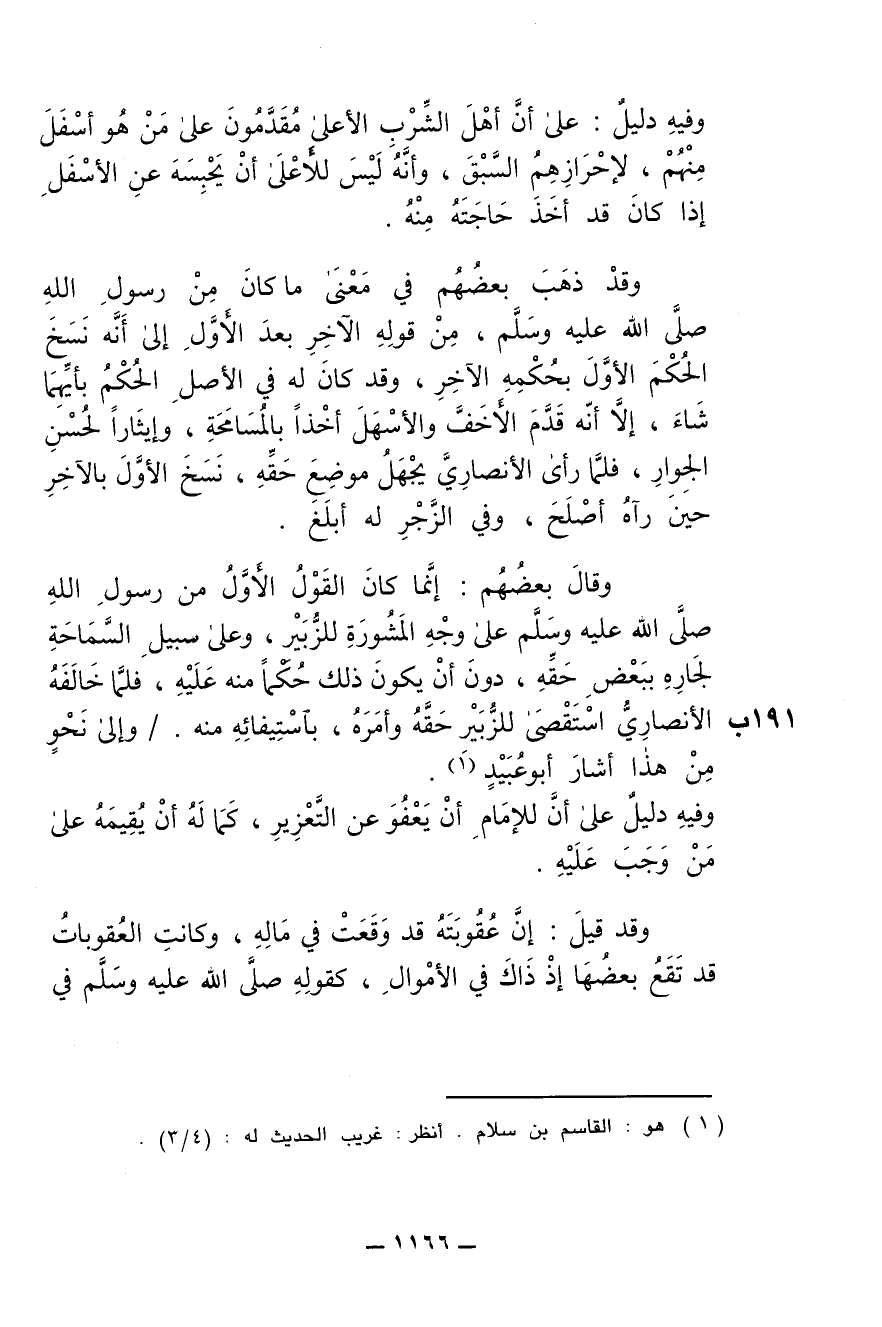 وفيهِ دليلٌ : علىٰ أنَّ أهْلَ الشِّرْبِ الأعلىٰ مُقَدَّمُونَ علىٰ مَنْ هُو أسْفَلَ
مِنْهُمْ ، لإحْرَازِهِمُ السَّبْقَ ، وأنَّهُ لَيْسَ للأَعْلَىٰ أنْ يَحْبِسَهَ عنِ الأسْفَلِ
إذا كانَ قد أخَذَ حَاجَتَهُ مِنْهُ .
وقدْ ذهَبَ بعضُهُم في مَعْنَىٰ ما كانَ مِنْ رسولِ اللهِ
صلَّى الله عليه وسَلَّم ، مِنْ قولِهِ الآخِرِ بعدَ الأَوَّلِ إلىٰ أَنَّه نَسَخَ
الحُكْمَ الأوَّلَ بحُكْمِهِ الآخِرِ ، وقد كانَ له في الأصلِ الحُكْمُ بأيِّهِمَا
شَاءَ ، إلَّا أنّه قَدَّمَ الأَخَفَّ والأسْهَلَ أخْذاً بالمُسَامَحَةِ ، وإيثَاراً لحُسْنِ
الجِوارِ ، فلمَّا رأىٰ الأنصاريَّ يجْهَلُ موضِعَ حَقِّهِ ، نَسَخَ الأوَّلَ بالآخِرِ
حينَ رآهُ أصْلَحَ ، وفي الزَّجْرِ له أبلَغَ .
وقالَ بعضُهُم : إنَّما كانَ القَوْلُ الأَوَّلُ من رسولِ اللهِ
صلَّى الله عليه وسَلَّم علىٰ وجْهِ المَشُورَةِ للزُّبَيْرِ ، وعلىٰ سبيلِ السَّمَاحَةِ
لجَارِهِ ببَعْضِ حَقِّهِ ، دونَ أنْ يكونَ ذلك حُكْماً منه عَلَيْهِ ، فلمَّا خَالَفَهُ
١٩١ب الأنصاريُّ اسْتَقْصَىٰ للزُّبَيْرِ حَقَّهُ وأمَرَهُ ، بٱسْتِيفائِهِ منه . / وإلىٰ نَحْوٍ
مِنْ هذٰا أشارَ أبوعُبَيْدٍ (١) .
وفيهِ دليلٌ علىٰ أنَّ للإمَامِ أنْ يَعْفُوَ عن التَّعْزِيرِ ، كَمَا لَهُ أنْ يُقِيمَهُ علىٰ
مَنْ وَجَبَ عَلَيْهِ .
وقد قيلَ : إنَّ عُقُوبَتَهُ قد وَقَعَتْ في مَالِهِ ، وكانتِ العُقوباتُ
قد تَقَعُ بعضُهَا إذْ ذَاكَ في الأمْوالِ ، كقولِهِ صلَّى الله عليه وسَلَّم في
(١) هو : القاسم بن سلام . أنظر : غريب الحديث له : (٣/٤) .
– ١١٦٦ –